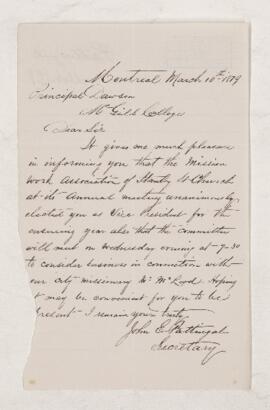 Montreal March 10th 1879
Principal Dawson
McGill College
Dear Sir
It gives me much pleasure
in informing you that the Mission
Work Association of Stanley St Church
at its Annual meeting unanimously
elected you as Vice President for the
ensuing year also that the committee
will meet on Wednesday evening at 7-30
to consider business in connection with
our city missionary Mr McLeod Hoping
it may be convenient for you to be
present I remain yours truly
John E.
Secretary